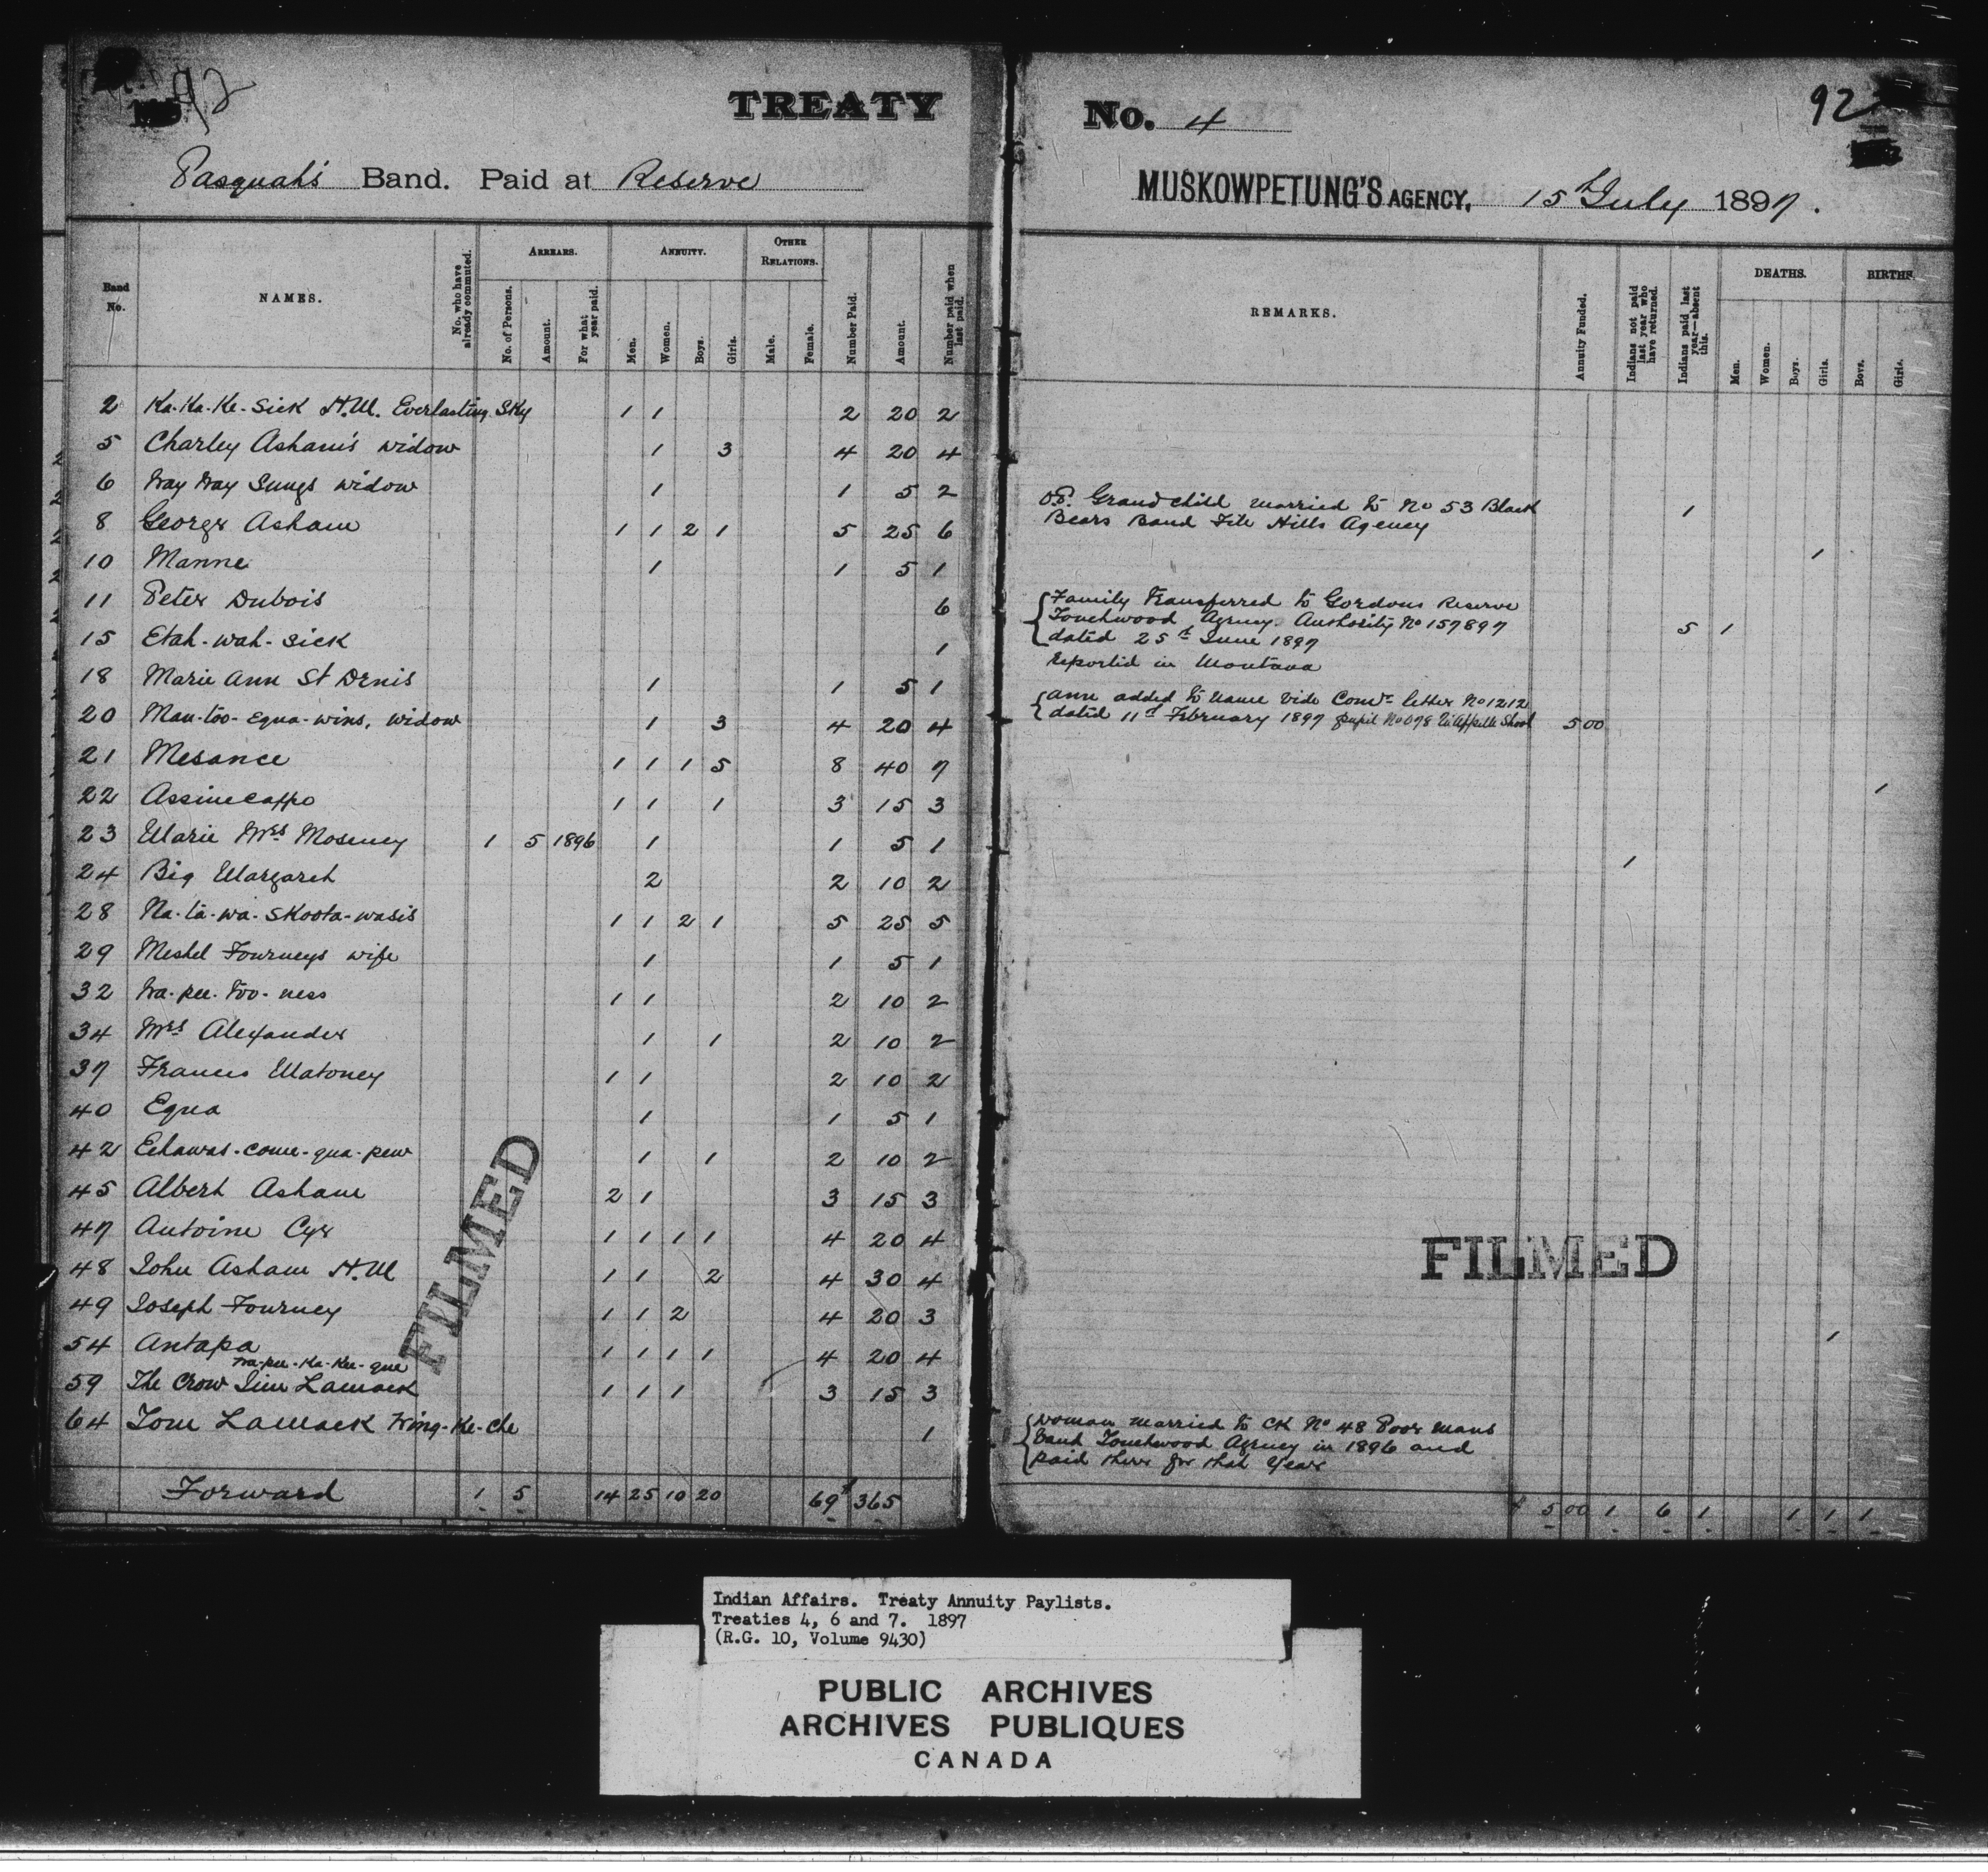 92
TREATY No. 4
92
Pasquah's Band. Paid at Reserve
MUSKOWPETUNG'S AGENCY, 15th July 1897.
Band No. NAMES. No. who have already commuted. ARREARS. No. of Persons. Amount. For what year paid. ANNUITY. Men. Women. Boys. Girls. OTHER RELATIONS. Male. Female. Number Paid. Amount. Number paid when last paid.
REMARKS. Annuity Funded. Indians not paid last year who have returned. Indians paid last year—absent this. DEATHS. Men. Women. Boys. Girls. BIRTHS. Boys. Girls.
2 Ka-Ka-Ke-Sick H.M. Everlasting Sky 1 1 2 20 2
5 Charley Asham's widow 1 3 4 20 4
6 Way Way Sungs widow 1 1 5 2
O.P. Grand child married to No 53 Black 1
Bears Band File Hills Agency
8 George Asham 1 1 2 1 5 25 6
1
10 Manne 1 1 5 1
11 Peter Dubois 6
Family Transferred to Gordons Reserve
Touchwood Agency. Authority No 157897 5 1
dated 25th June 1897
15 Etah-wah-sick 1
Reported in Montana
18 Marie Ann St Denis 1 1 5 1
Ann added to name Vide Comrs letter No 1212
dated 11th February 1897 pupil No 078 Qu'Appelle School 5 00
20 Man-too-Equa-wins, widow 1 3 4 20 4
21 Mesance 1 1 1 5 8 40 7
1
22 Assinecappo 1 1 1 3 15 3
23 Marie Mrs Moseney 1 5 1896 1 1 5 1
1
24 Big Margaret 2 2 10 2
28 Na-ta-wa-skoota-wasis 1 1 2 1 5 25 5
29 Meshel Fourneys wife 1 1 5 1
32 Wa-pee-too-ness 1 1 2 10 2
34 Mrs Alexander 1 1 2 10 2
37 Francis Matoney 1 1 2 10 2
40 Equa 1 1 5 1
42 Echawas-come-qua-pew 1 1 2 10 2
45 Albert Asham 2 1 3 15 3
47 Antoine Cyr 1 1 1 1 4 20 4
48 John Asham H.M 1 1 2 4 30 4
49 Joseph Fourney 1 1 2 4 20 3
1
54 Antapa 1 1 1 1 4 20 4
Wa-pee-Ka-Kee-que
59 The Crow Jim Lamack 1 1 1 3 15 3
64 Tom Lamack Wing-Ke-che 1
Woman married to CK No 48 Poor Mans
Band Touchwood Agency in 1896 and
paid there for that year
Forward 1 5 14 25 10 20 69 $365
$ 5 00 1 6 1 1 1 1
FILMED
FILMED
Indian Affairs. Treaty Annuity Paylists.
Treaties 4, 6 and 7. 1897
(R.G. 10, Volume 9430)
PUBLIC ARCHIVES
ARCHIVES PUBLIQUES
CANADA